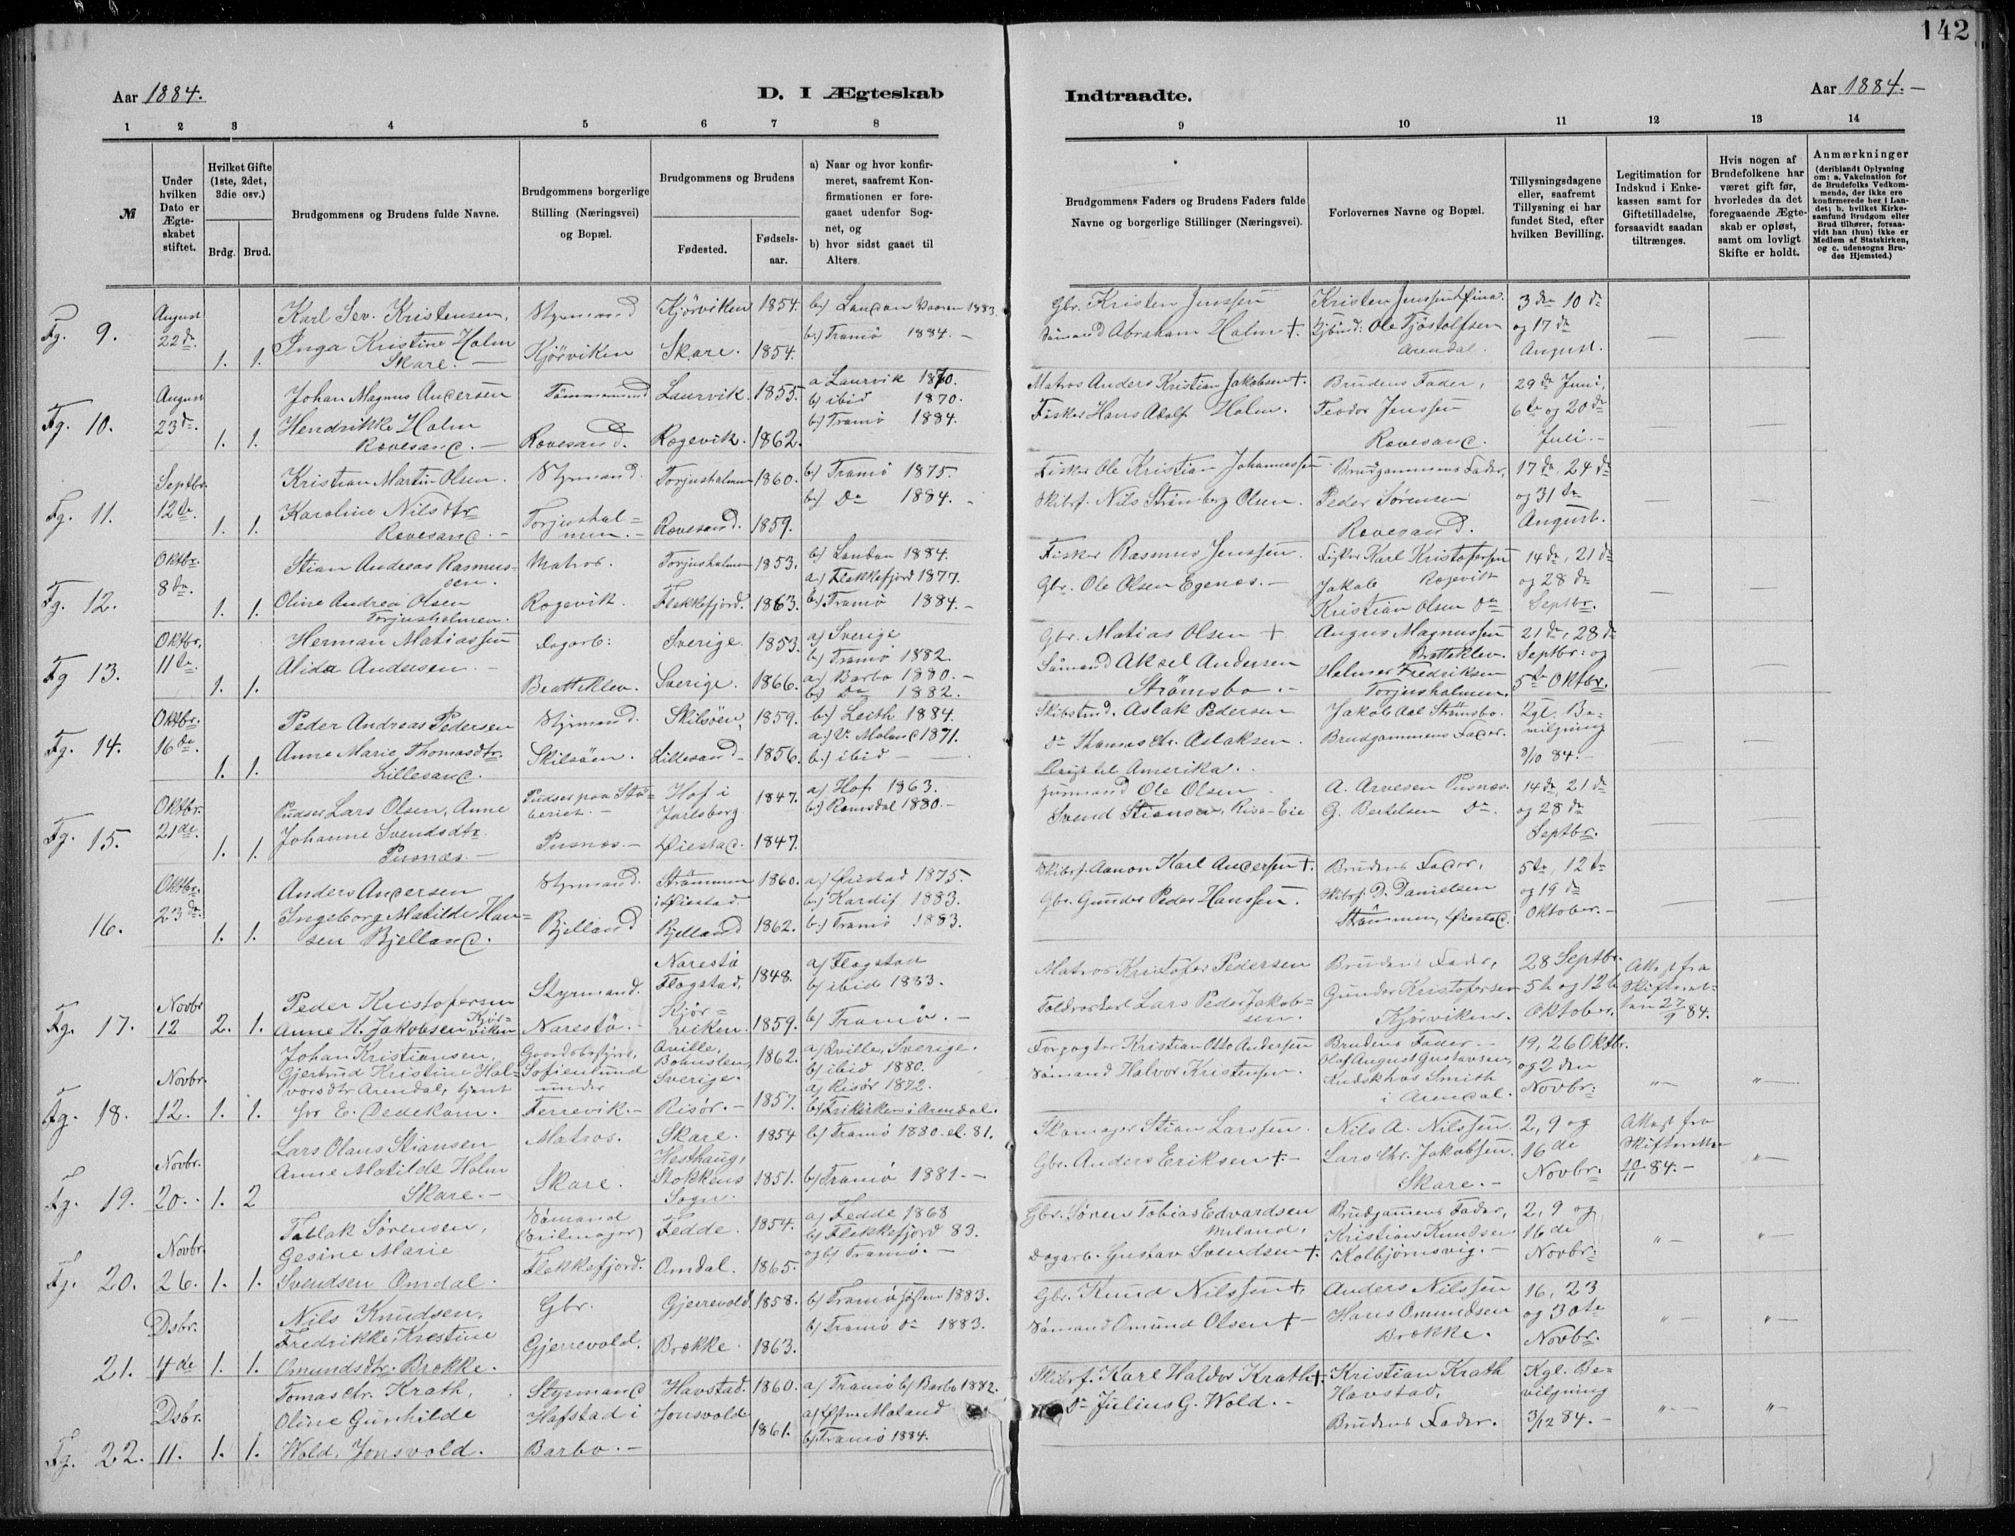 142
Aar 1884.
D. I Ægteskab
Indtraadte.
Aar 1884.-
1 2 3 4 5 6 7 8
9 10 11 12 13 14
№
Under hvilken Dato er Ægteskabet stiftet.
Hvilket Gifte (1ste, 2det, 3die osv.)
Brdg. Brud.
Brudgommens og Brudens fulde Navne.
Brudgommens borgerlige Stilling (Næringsvei) og Bopæl.
Brudgommens og Brudens
Fødested.
Fødsels-aar.
a) Naar og hvor konfirmeret, saafremt Konfirmationen er foregaaet udenfor Sognet, og
b) hvor sidst gaaet til Alters.
Brudgommens Faders og Brudens Faders fulde Navne og borgerlige Stillinger (Næringsvei).
Forlovernes Navne og Bopæl.
Tillysningsdagene eller, saafremt Tillysning ei har fundet Sted, efter hvilken Bevilling.
Legitimation for Indskud i Enkekassen samt for Giftetilladelse, forsaavidt saadan tiltrænges.
Hvis nogen af Brudefolkene har været gift før, hvorledes da det foregaaende Ægteskab er opløst, samt om lovligt Skifte er holdt.
Anmærkninger (deriblandt Oplysning om: a. Vakcination for de Brudefolks Vedkommende, der ikke ere konfirmerede her i Landet; b. hvilket Kirkesamfund Brudgom eller Brud tilhører, forsaavidt han (hun) ikke er Medlem af Statskirken, og c. udensogns Brudes Hjemsted.)
Fg. 9. August 22de. 1. 1. Karl Sev. Kristensen, Styrmand Kjørviken 1854. b) London Vaaren 1883.
Inga Kristine Holm Skare.- Kjørviken Skare. 1854. b) Tromø 1884.-
Gbr. Kristen Jenssen Kristen Jenssen 3die 10de
Sømand Abraham Holm +. Ole Tjøstolfsen Arendal. og 17de August.
Fg. 10. August 23de. 1. 1. Johan Magnus Andersen Tømmermand Laurvik. 1855. a Laurvik 1870. b) ibid 1870.
Hendrikke Holm Rævesand.- Rævesand. Rogevik. 1862. b) Tromø 1884.
Matros Anders Kristian Jakobsen +. Brudens Fader, 29de Juni,
Fisker Hans Adolf Holm. Teodor Jenssen Rævesand. 6te og 20de Juli.-
Fg. 11. Septbr. 12te. 1. 1. Kristian Martin Olsen. Styrmand. Torjusholmen 1860. b) Tromø 1875.
Karoline Nilsdtr Rævesand.- Torjusholmen.- Rævesand. 1859. b) Do 1884.-
Fisker Ole Kristian Johannessen Brudgommens Fader, 17de, 24de
Skibsf. Nils Strømberg Olsen. Peder Sørensen Rævesand. og 31te August.
Fg. 12. Oktbr. 8de. 1. 1. Stian Andreas Rasmussen. Matros. Torjusholmen 1853. b) London 1884.
Oline Andrea Olsen Torjusholmen. Rogevik. Flekkefjord. 1863. a) Flekkefjord 1877. b) Tromø 1884.-
Fisker Rasmus Jenssen. Fisker Karl Kristofersen 14de, 21de
Gbr. Ole Olsen Egenæs.- Jakob Rogevik Kristian Olsen Do og 28de Septbr.
Fg 13. Oktbr. 11te. 1. 1. Herman Matiassen Dagarb: Sverige 1853. a) Sverige b) Tromø 1882.
Alida Andersen.- Bratteklev. Sverige. 1866. a) Barbo 1880.- b) Do 1882.
Gbr. Matias Olsen + August Magnussen Bratteklev. 21de, 28de
Sømand Aksel Andersen Strømsbo.- Helmer Fredriksen Torjusholmen. Septbr. og 5te Oktbr.
Fg. 14. Oktbr. 16de. 1. 1. Peder Andreas Pedersen Styrmand. Skilsøen, 1859. b) Leith 1884.
Anne Marie Thomasdtr. Lillesand. Skilsøen. Lillesand. 1856. a) V. Moland 1871. b) ibid -
Skibstmd. Aslak Pedersen Jakob Aal Strømsbo. Kgl. Be-
Do Thomas Chr. Aslaksen. Brudgommens Fader. vilgning 8/10 84.-
til Amerika.
Fg. 15. Oktbr. 21de. 1. 1. Pudser Lars Olsen, Anne Pudser paa Støberiet.- Hof i Jarlsberg 1847. a) Hof 1863. b) Romsdal 1880.-
Johanne Svendsdtr. Pusnæs.- Pusnæs.- Øiestad. 1847.
Ole Olsen. A. Arnesen Pusnæs. 14de, 21de
Svend Stiansen, Riso-Eie G. Bertelsen Do. og 28de Septbr.
16. Oktbr. 23de. 1. 1. Anders Andersen Styrmand. Strømmen i Øiestad. 1860. a) Øiestad 1875. b) Kardif 1883.
Ingeborg Matilde Hansen Bjelland. Bjelland Bjelland 1862. b) Tromø 1883.
Skibsf. Aanon Karl Andersen +. Brudens Fader, 5te, 12te
Gbr. Gunder Peder Hanssen. Skibsf. D. Danielsen Strømmen, Øiestad. og 19de Oktober.-
Fg. 17. Novbr 12 2. 1. Peder Kristofersen Styrmand. Narestø Flagstad, 1848. a) Flagstad b) ibid 1883.
Anne K. Jakobsen Kjørviken Narestø.- Kjørviken. 1859. b) Tromø.-
Matros Kristofer Pedersen Brudens Fader, 28 Septbr. Attest fra
Lars Peder Jakobsen. Gunder Kristofersen Kjørviken. 5te og 12te Oktober. Skifteretten 27/9 84.
Fg. 18. Novbr. 12. 1. 1. Johan Kristiansen, Gaardsbestyrer, Qville, Bohuslen, Sverige. 1862. a) Qville, Sverige. b) ibid 1880.
Gjertrud Kristine Halvorsdtr Arendal, tjent for E. Dedekam. Sofienlund under Færevik.- Risør.- 1857. a) Risør 1872. b) Frikirken i Arendal.
Forpagter Kristian Otto Andersen Brudens Fader- 19, 26 Oktbr.
Sømand Halvor Kristensen. Olof August Gustavsen, Smith i Arendal. og 2 den Novbr.
Fg. 19. Novbr. 20. 1. 2 Lars Olaus Stiansen Matros. Skare. 1854 b) Tromø 1880. el. 81.
Anne Matilde Holm Skare.- Skare. Hesthaug, Stokkens Sogn. 1851. b) Tromø 1881.-
Skomager Stian Larssen. Nils A. Nilssen. 2, 9 og Attest fra
Gbr. Anders Eriksen +.- Lars Chr. Jakobsen. Skare.- 16 de Novbr. Skifteretten 10/11 84.-
Fg. 20. Novbr. 26. 1. 1. Tallak Sørensen, Sømand (Seilmager) Fedde. 1854. a) Fedde 1868 b) Flekkefjord 83.
Gesine Marie Svendsen Omdal. Flekkefjord. Omdal. 1865. og b) Tromø.-
Gbr. Søren Tobias Edvardsen Meland, Brudgommens Fader, 2, 9 og
Dagarb. Gustav Svendsen +. Kristian Knudsen Kolbjørnsvig.- 16 de Novbr.
21. Dsbr. 4 de 1. 1. Nils Knudsen, Gbr. Gjerrevold. 1858. b) Tromø Høsten 1883.
Fredrikke Kristine Omundsdtr. Brække. Gjerrevold. Brække. 1863. b) Tromø Do 1883.
Gbr. Knud Nilssen +. Anders Nilssen 16, 23
Sømand Omund Olsen +- Hans Omundsen Brække. og 30te Novbr.
Fg. 22. Dsbr. 11. 1. 1. Tomas Chr. Krath, Styrmand Havstad. 1860. a) Tromø b) Barbo 1882.
Oline Gunhilde Wold, Jonsvold. Hafstad i Barbo.- Jonsvold 1861. a) Østre Moland b) Tromø 1884.
Skibsf. Karl Haldor Krath + Kristian Krath Havstad, Kgl. Be-
Do Julius G. Wold.- Brudens Fader. vilgning 3/12 84.-